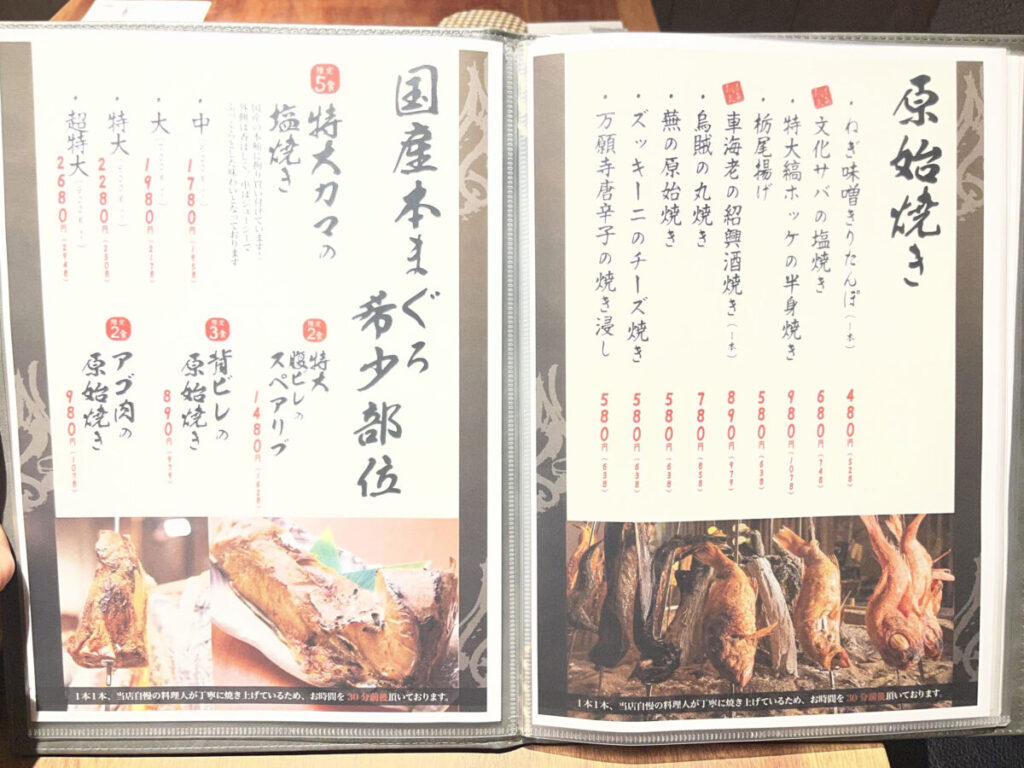 原始焼き
・ねぎ味噌きりたんぽ(一本) 480円(528)
文化サバの塩焼き 680円(748)
・特大縞ホッケの半身焼き 980円(1078)
・栃尾揚げ 580円(638)
車海老の紹興酒焼き(一本) 890円(979)
・烏賊の丸焼き 780円(858)
・蕪の原始焼き 580円(638)
・ズッキーニのチーズ焼き 580円(638)
・万願寺唐辛子の焼き浸し 580円(638)
1本1本、当店自慢の料理人が丁寧に焼き上げているため、お時間を30分前後頂いております。
国産本まぐろ
希少部位
限定5食
特大カマの
塩焼き
・中 1780円(1958)
・大 1980円(2178)
・特大 2280円(2508)
・超特大 2680円(2948)
限定2食
特大
腹ビレの
スペアリブ
1480円(1628)
限定3食
背ビレの
原始焼き
890円(979)
限定2食
アゴ肉の
原始焼き
980円(1078)
1本1本、当店自慢の料理人が丁寧に焼き上げているため、お時間を30分前後頂いております。